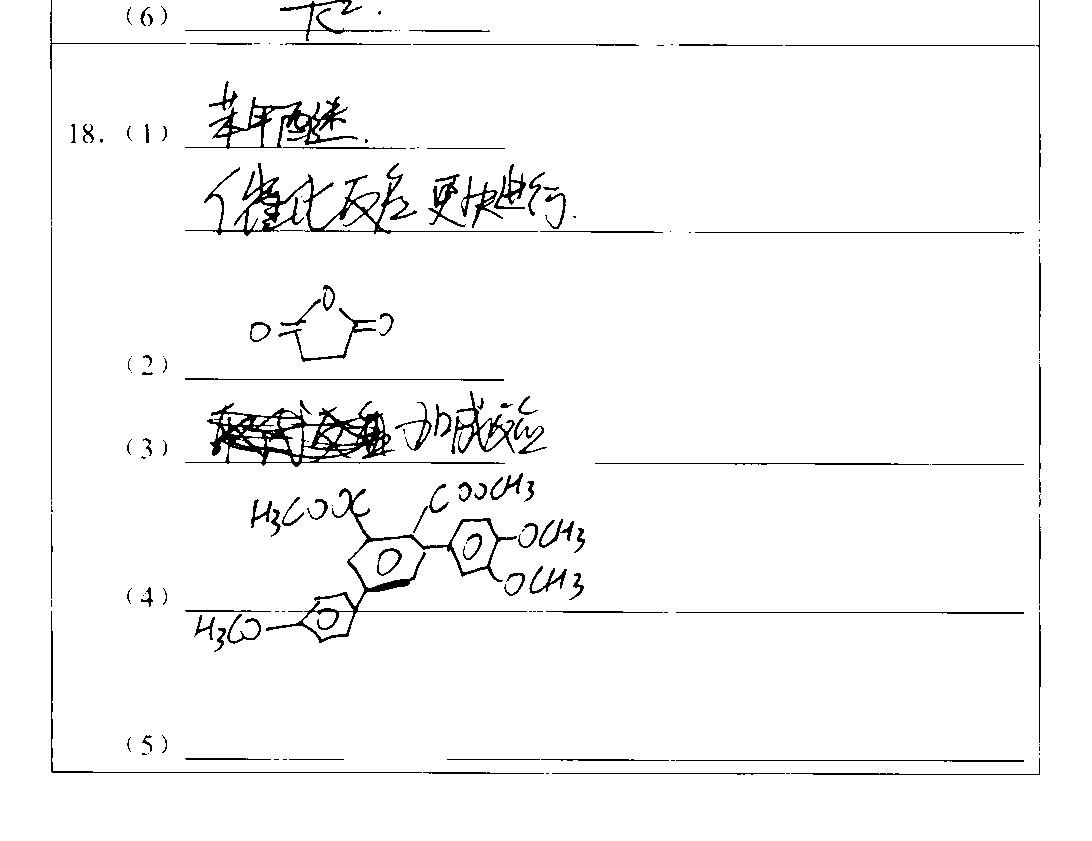 (6)
18. (1) 苯甲醚.
催化反应更快进行.
O O O
(2)
(3) 加成反应
H3COOC COOCH3
OCH3
OCH3
(4)
H3CO
(5)